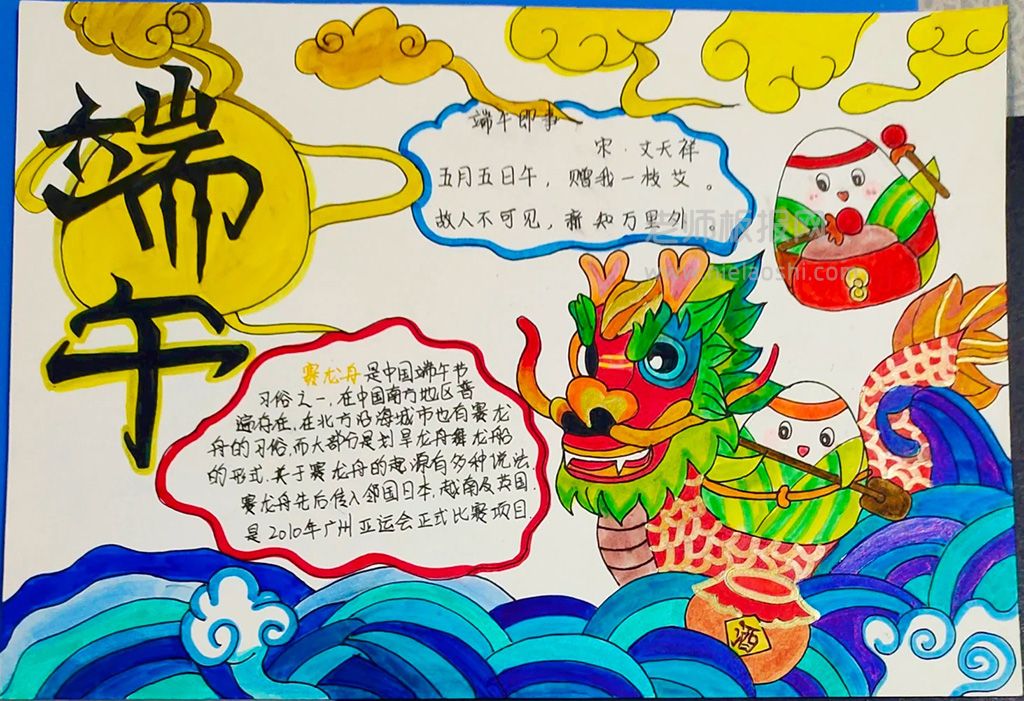 端午
端午即事
宋·文天祥
五月五日午，赠我一枝艾。
故人不可见，新知万里外。
赛龙舟是中国端午节
习俗之一，在中国南方地区普
遍存在，在北方沿海城市也有赛龙
舟的习俗，而大部分是划旱龙舟舞龙船
的形式。关于赛龙舟的起源有多种说法
赛龙舟先后传入邻国日本.越南及英国.
是2010年广州亚运会正式比赛项目.
酒
老师板报网